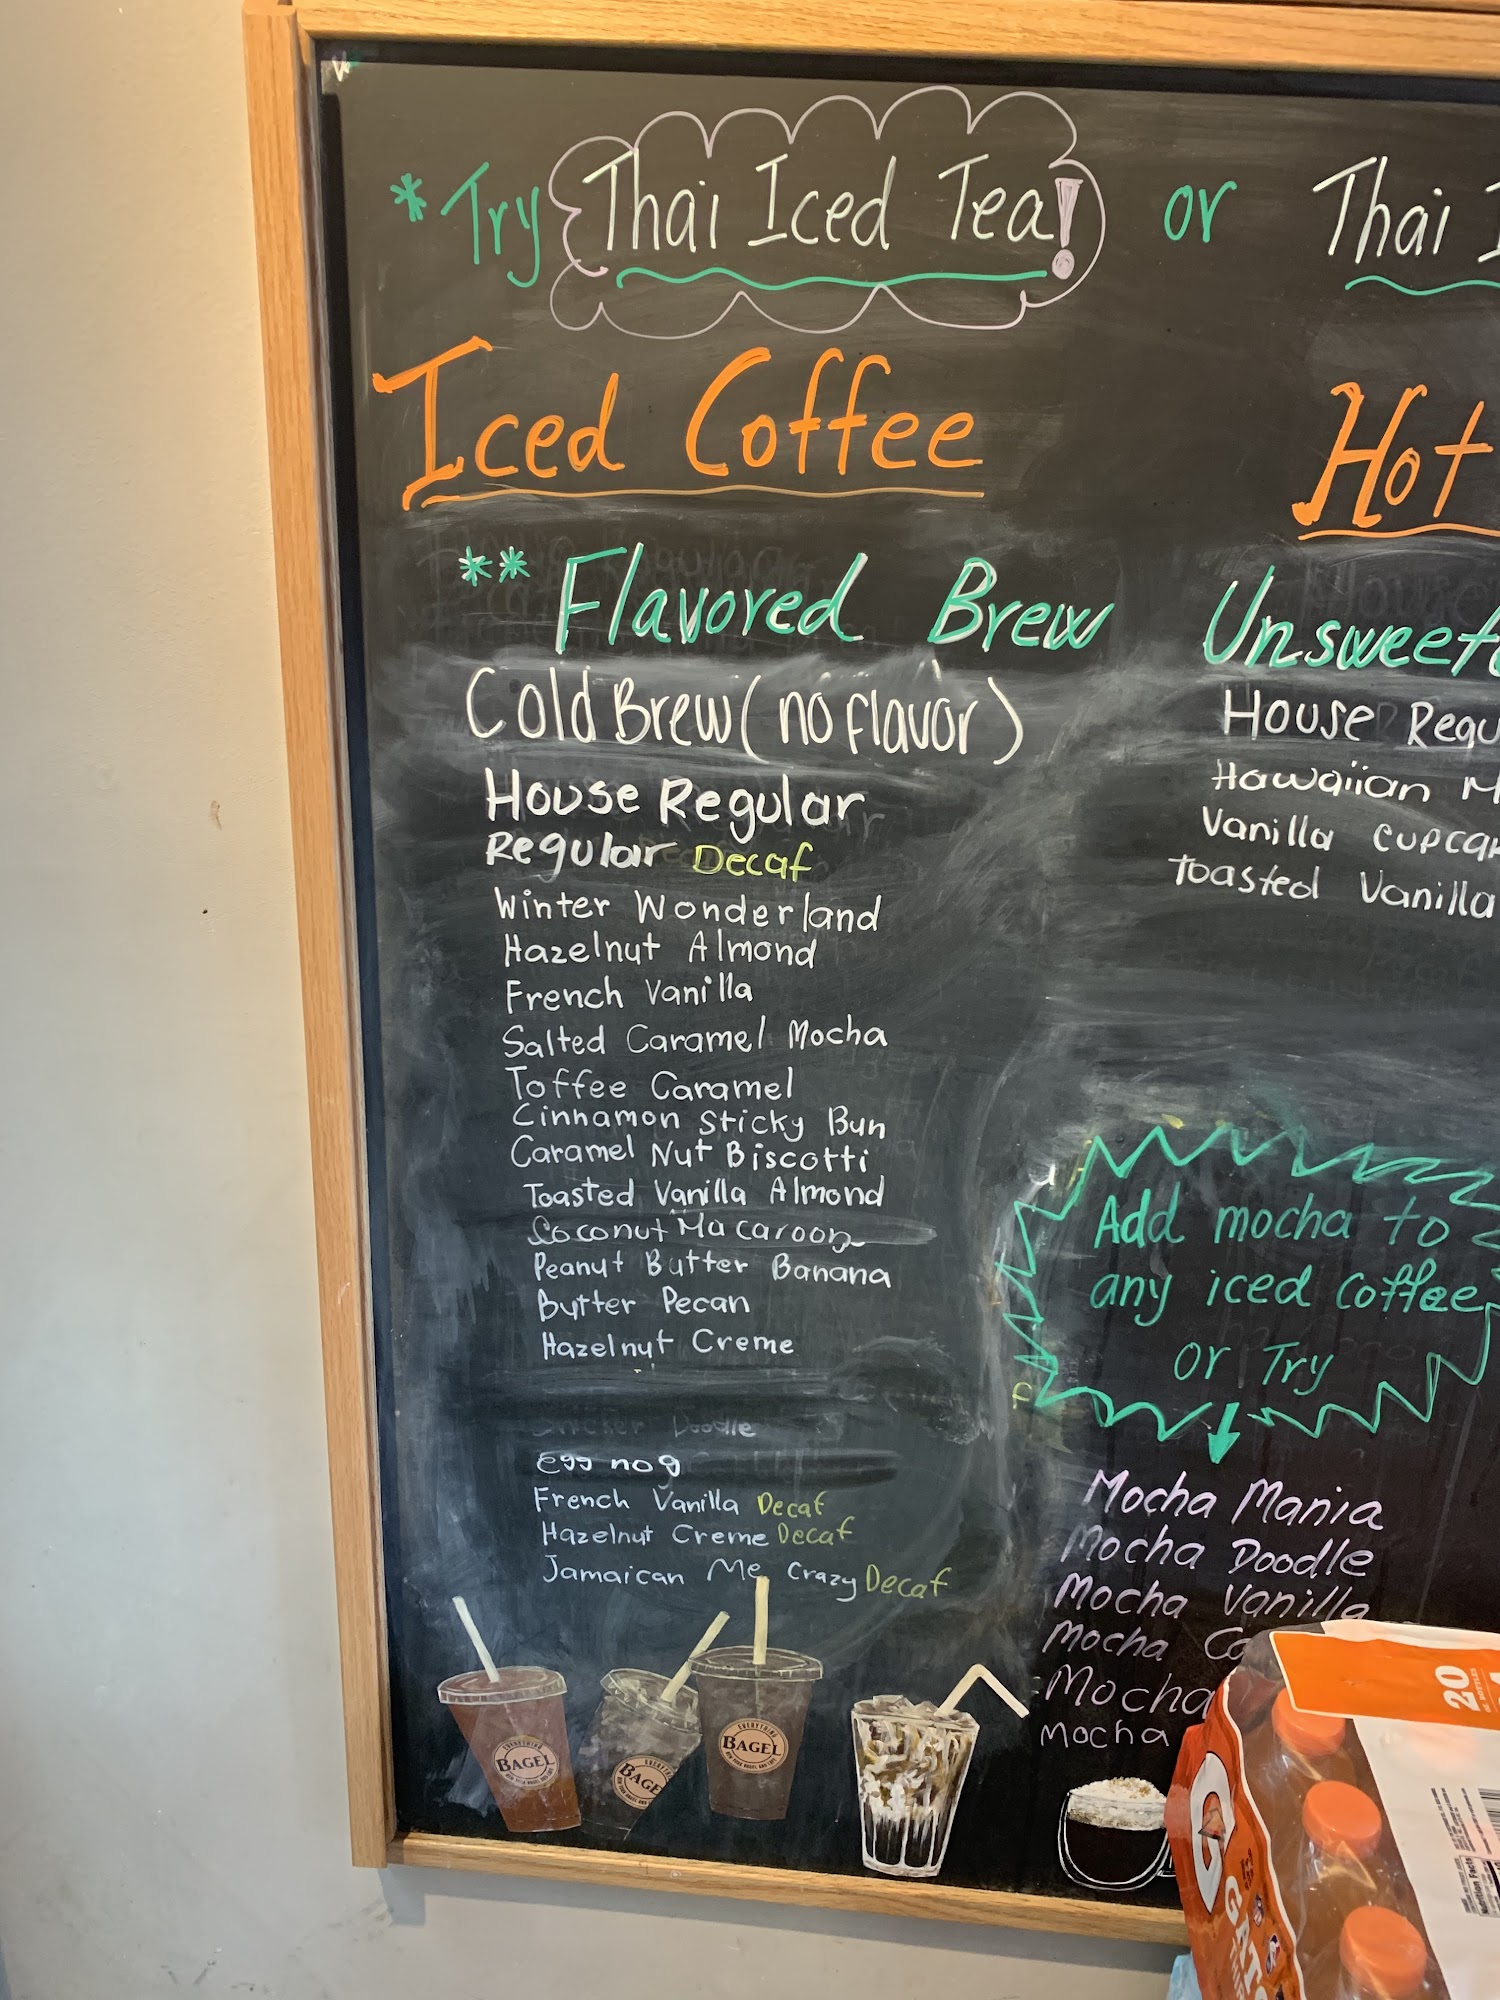 *Try Thai Iced Tea! or Thai
Iced Coffee
Hot
** Flavored Brew
Cold Brew (no flavor)
House Regular
Regular Decaf
Winter Wonderland
Hazelnut Almond
French Vanilla
Salted Caramel Mocha
Toffee Caramel
Cinnamon Sticky Bun
Caramel Nut Biscotti
Toasted Vanilla Almond
Coconut Macaroon
Peanut Butter Banana
Butter Pecan
Hazelnut Creme
Doodle
Egg nog
French Vanilla Decaf
Hazelnut Creme Decaf
Jamaican Me Crazy Decaf
Unsweet
House Regu
Hawaiian M
Vanilla cupca
Toasted Vanilla
Add mocha to
any iced coffee
or Try
Mocha Mania
Mocha Doodle
Mocha Vanilla
Mocha Co
Mocha
Mocha
EVERYTHING
BAGEL
BAGE
EVERYTHING
BAGEL
20
G
GAT
Nutrition Facts